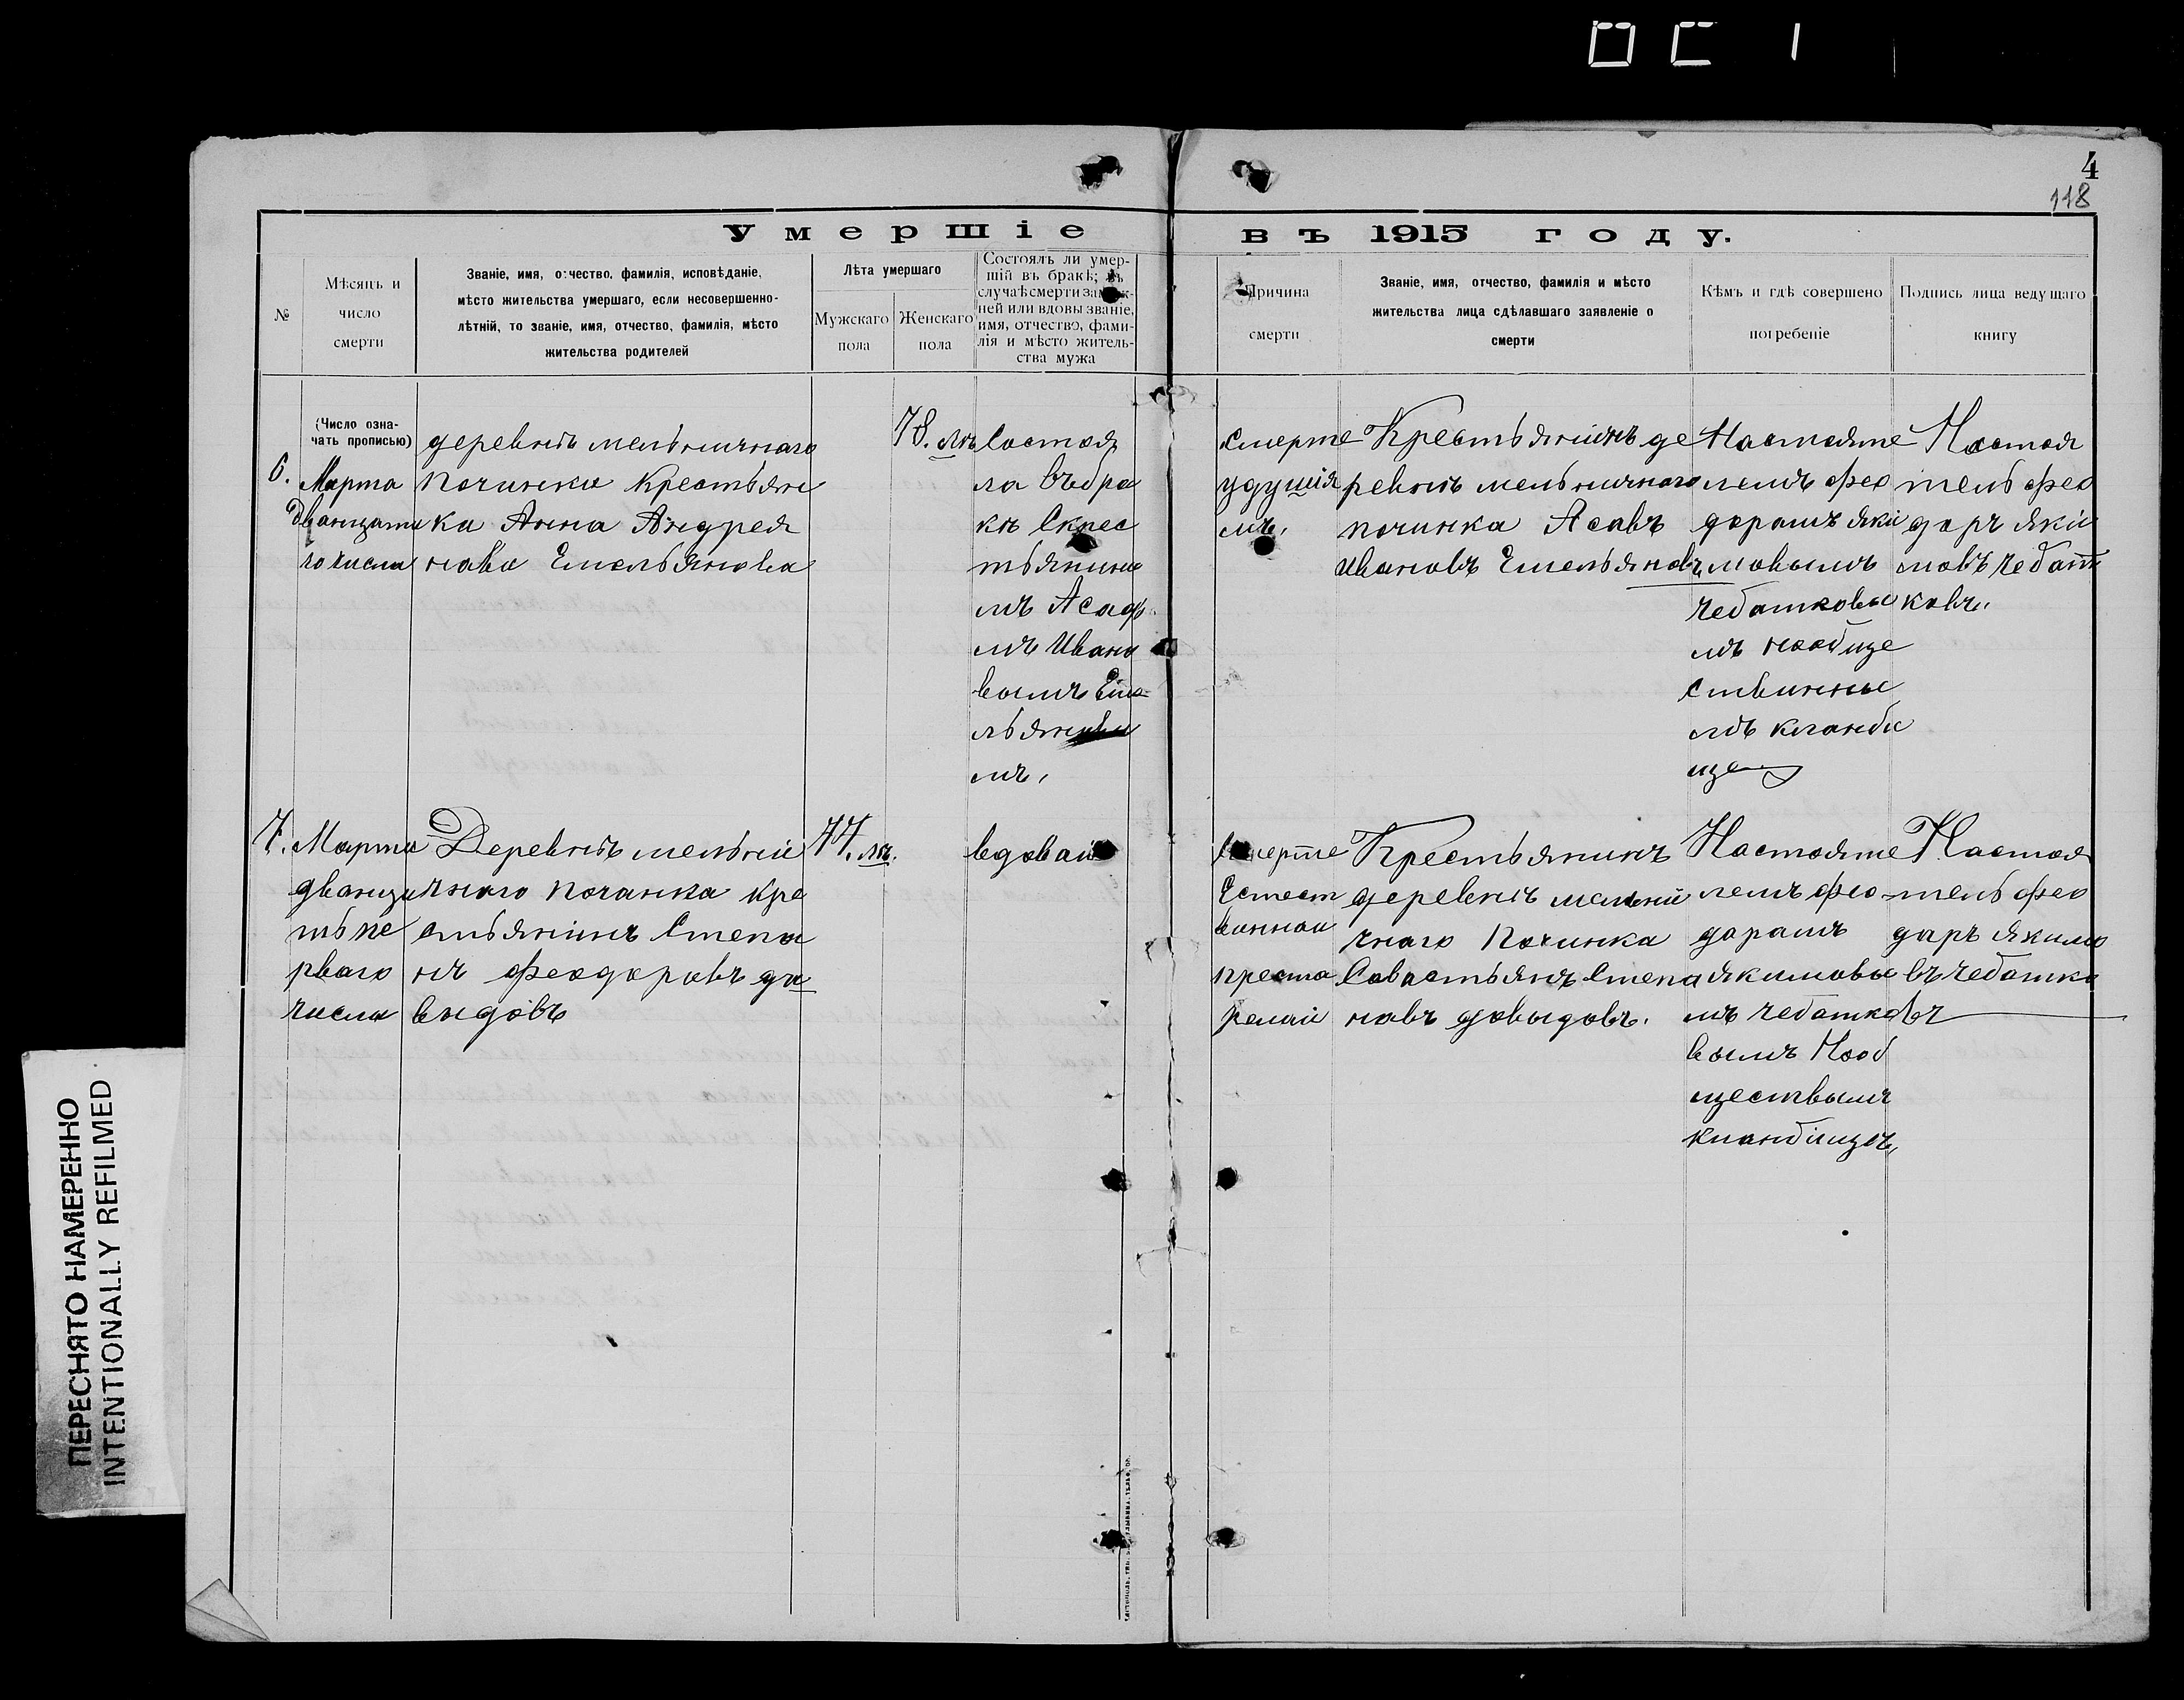 4
118
Умершіе въ 1915 году.
№
Мѣсяцъ и
число
смерти
Званіе, имя, отчество, фамилія, исповѣданіе,
мѣсто жительства умершаго, если несовершенно-
лѣтній, то званіе, имя, отчество, фамилія, мѣсто
жительства родителей
Лѣта умершаго
Мужскаго
пола
Женскаго
пола
Состоялъ ли умер-
шій въ бракѣ; въ
случаѣ смерти замуж-
ней или вдовы званіе,
имя, отчество, фами-
лія и мѣсто житель-
ства мужа
Причина
смерти
Званіе, имя, отчество, фамилія и мѣсто
жительства лица сдѣлавшаго заявленіе о
смерти
Кѣмъ и гдѣ совершено
погребеніе
Подпись лица ведущаго
книгу
(Число озна-
чать прописью)
6.
Марта
двацати
го числа
деревнѣ мельничнаго
починка Крестьян
ка Анна Андрея
нава Емельянова
78. лѣ
Состоя
ла въбра
кѣ Скрес
тьянина
мъ Асаф
мъ Ивано
вымъ Еме
льянов
мъ,
Смерте
удушія
мъ,
Крестьянинъ де
ревнѣ мельничного
починка Асавъ
Ивановъ Емельяновъ
Настояте
лемъ фео
дорамъ яки
мовымъ
чебатковы
мъ нообще
ствинны
мъ кланби
ще
Настоя
тель фео
доръ якіи
мовъ чебат
ковъ,
7.
Марта
дванца
ть пе
рваго
числа
Деревнѣ мельни
чнаго починка кре
стьянинъ Степа
нъ феодоровъ да
выдовъ
77. лѣ.
вдовай
Смерте
Естест
винной
преста
релай
Крестьянинъ
деревнѣ мельни
чнаго Починка
Савастьянъ Степа
навъ довыдовъ.
Настояте
лемъ фео
дорамъ
якимовы
мъ чебатко
вымъ Нооб
ществымъ
кланбищѣ,
Настоя
тель фео
доръ якимо
въ чебатко
въ
ПЕРЕСНЯТО НАМЕРЕННО
INTENTIONALLY REFILMED